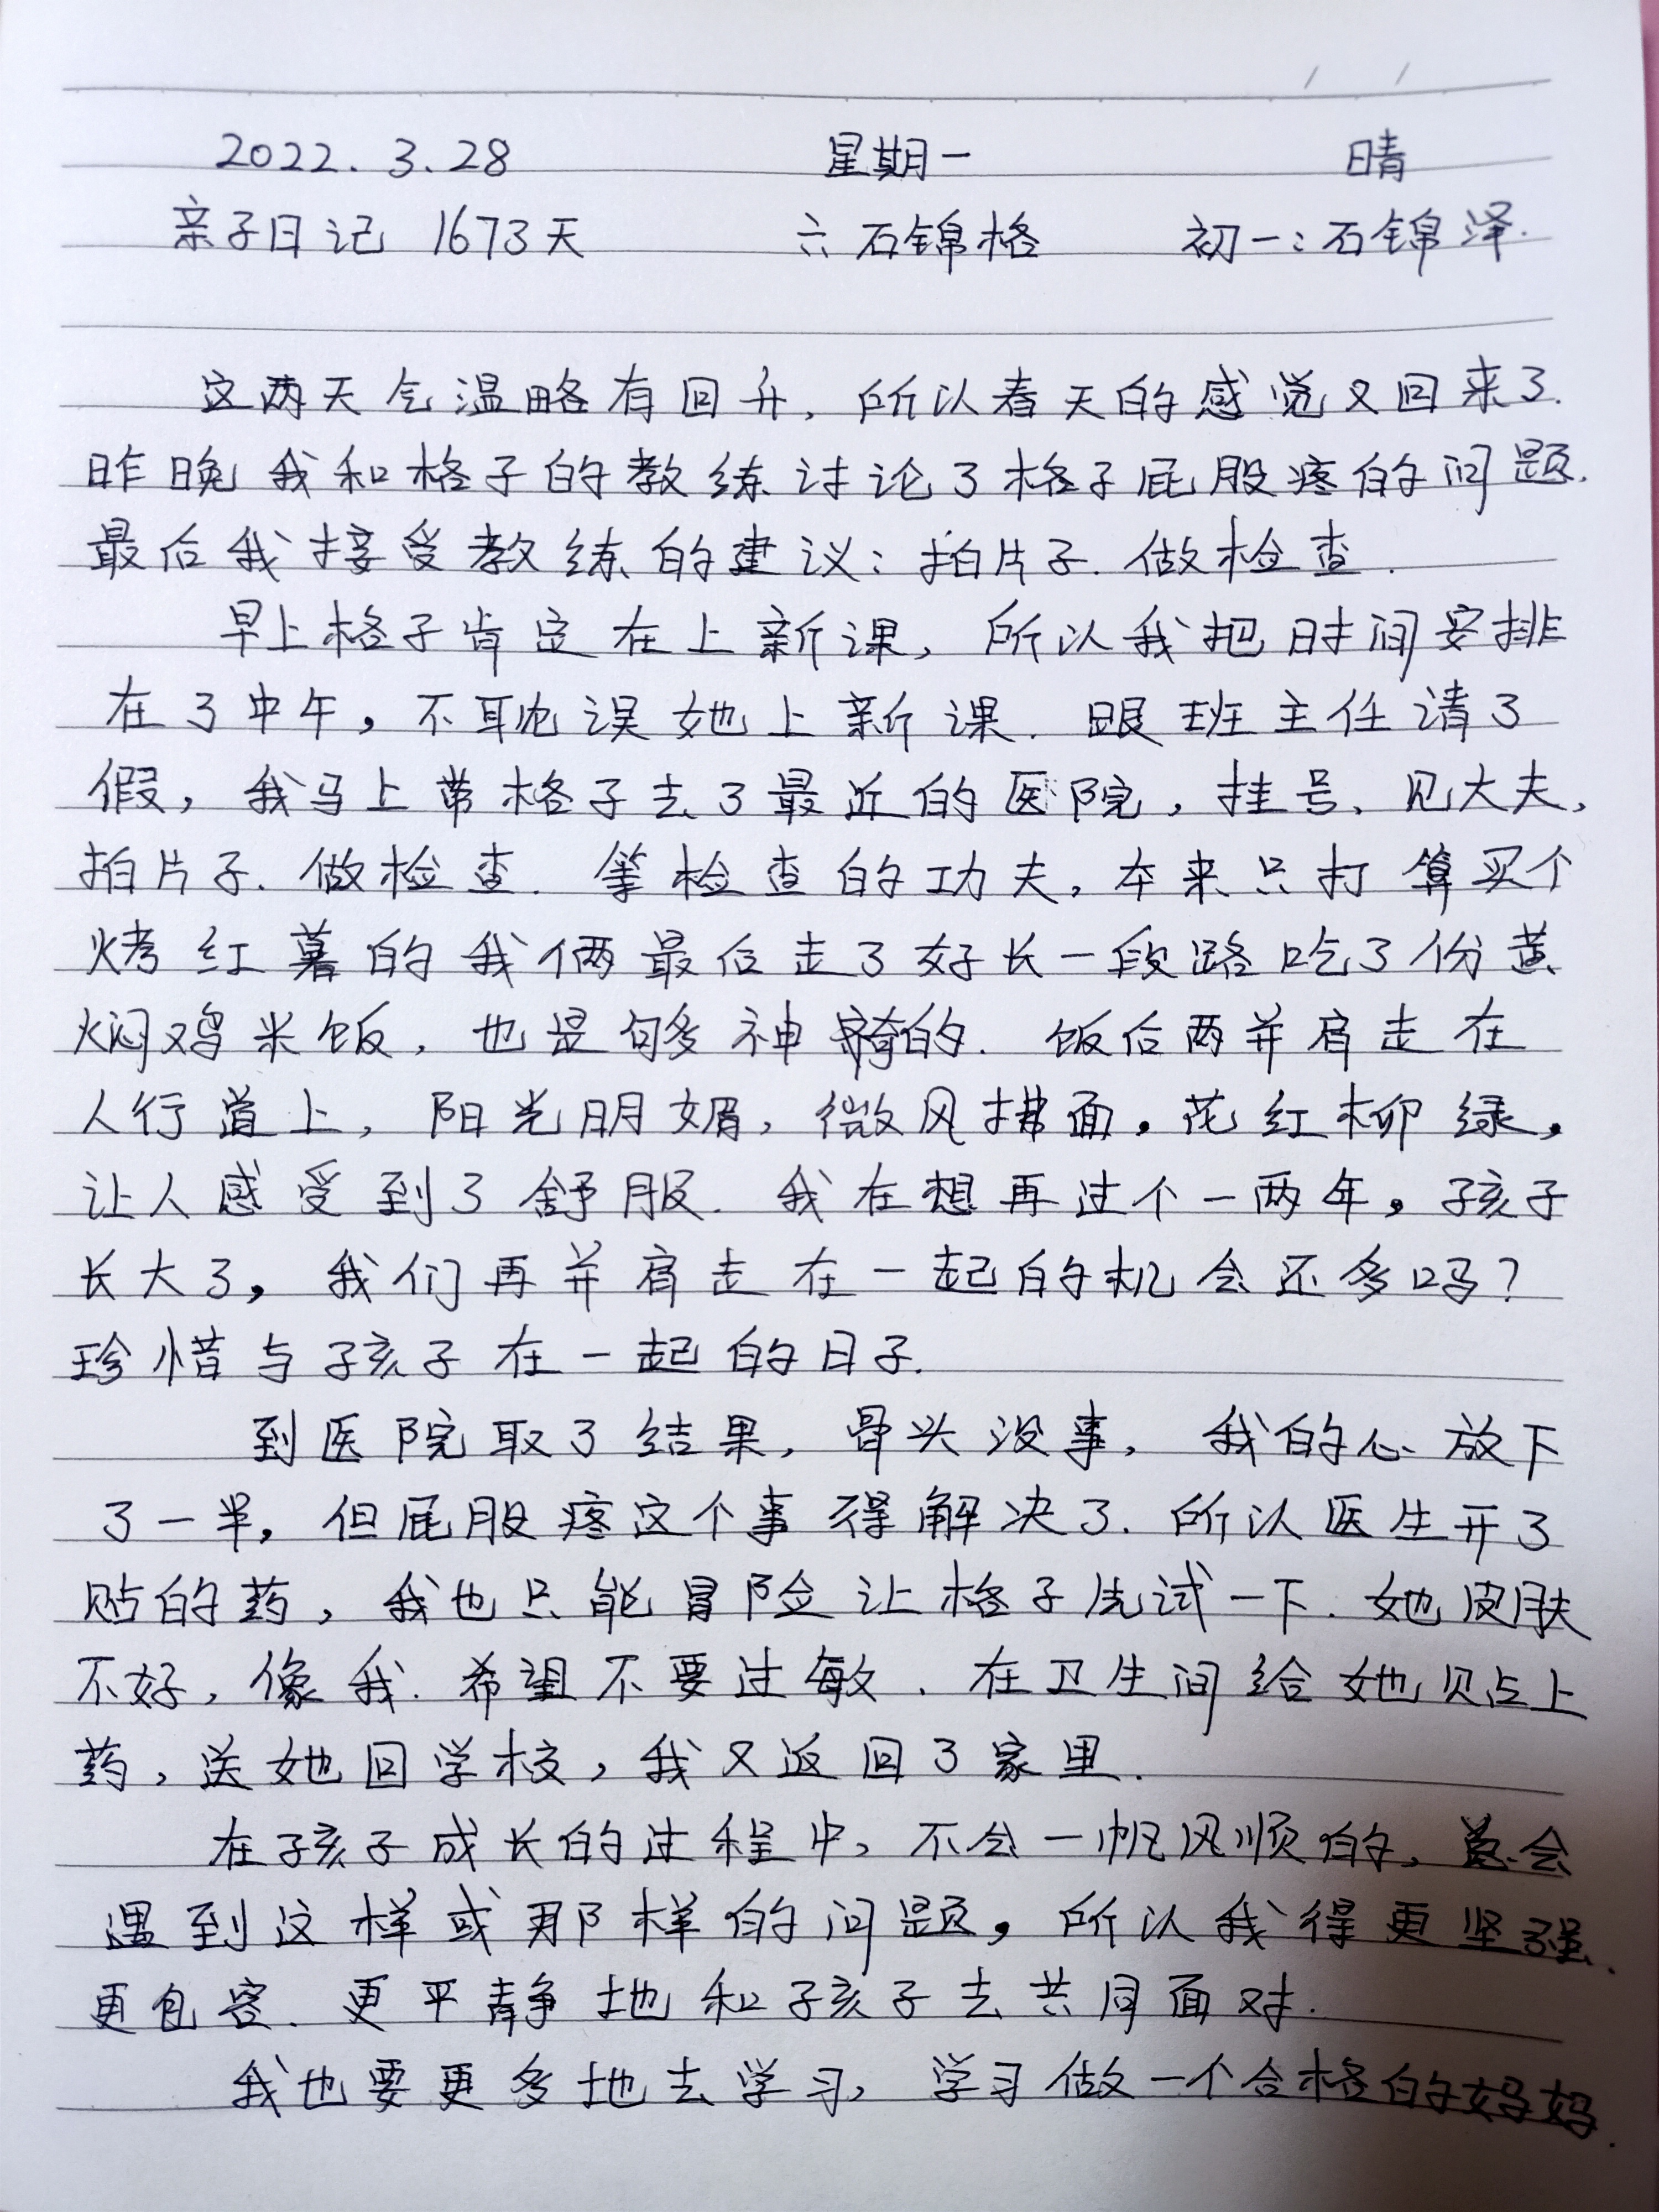 2022.3.28 星期一 晴
亲子日记 1673天 六 石锦格 初一:石锦泽.
这两天气温略有回升, 所以春天的感觉又回来了.
昨晚我和格子的教练讨论了格子屁股疼的问题.
最后我接受教练的建议: 拍片子. 做检查.
早上格子肯定在上新课, 所以我把时间安排
在了中午, 不耽误她上新课. 跟班主任请了
假, 我马上带格子去了最近的医院, 挂号、见大夫、
拍片子. 做检查. 等检查的功夫, 本来只打算买个
烤红薯的我俩最后走了好长一段路吃了份黄
焖鸡米饭, 也是够神奇的. 饭后两并肩走在
人行道上, 阳光明媚, 微风拂面, 花红柳绿,
让人感受到了舒服. 我在想再过个一两年, 孩子
长大了, 我们再并肩走在一起的机会还多吗?
珍惜与孩子在一起的日子.
到医院取了结果, 骨头没事, 我的心放下
了一半, 但屁股疼这个事得解决了. 所以医生开了
贴的药, 我也只能冒险让格子先试一下. 她皮肤
不好, 像我. 希望不要过敏. 在卫生间给她贴上
药, 送她回学校, 我又返回了家里.
在孩子成长的过程中, 不会一帆风顺的, 总会
遇到这样或那样的问题, 所以我得更坚强、
更包容. 更平静地和孩子去共同面对.
我也要更多地去学习, 学习做一个合格的妈妈.